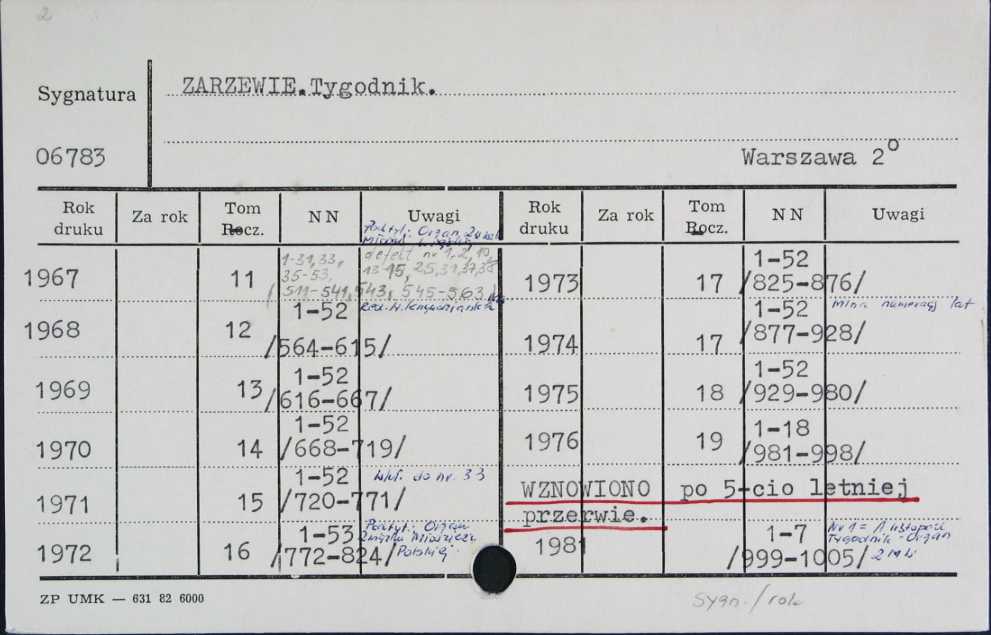 2
Sygnatura
ZARZEWIE.Tygodnik.
06783
Warszawa 2°
Rok druku
Za rok
Tom Rocz.
NN
Uwagi
Rok druku
Za rok
Tom Rocz.
NN
Uwagi
Podtyt: Organ
1967 11 1-31,33, defekt nr 1,2,10,
35-53, 13 15, 25,31,37,38
/511-541,543, 545-563/
1968 12 1-52
/564-615/
1969 13 1-52
/616-667/
1970 14 1-52
/668-719/
1971 15 1-52 do nr. 33
/720-771/
1972 16 1-53 Podtyt: Organ
Związku Młodzieży
/772-824/ Polskiej
1973 17 1-52
/825-876/
1974 17 1-52 numeracj lat
/877-928/
1975 18 1-52
/929-980/
1976 19 1-18
/981-998/
WZNOWIONO po 5-cio letniej
przerwie.
1981 1-7 Nr 1 = /1 listopad
Tygodnik-Organ
/999-1005/
ZP UMK — 631 82 6000
Sygn./rok